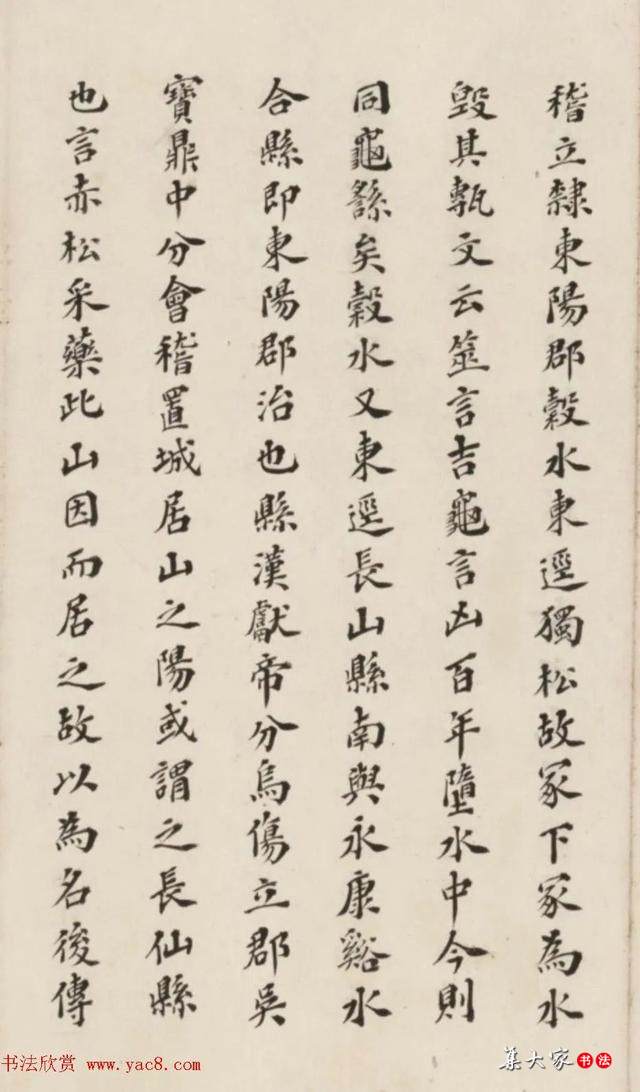 稽立隸東陽郡穀水東逕獨松故冢下冢為水
毀其甎文云筮言吉龜言凶百年墮水中今則
同龜繇矣穀水又東逕長山縣南與永康谿水
合縣即東陽郡治也縣漢獻帝分烏傷立郡吳
寶鼎中分會稽置城居山之陽或謂之長仙縣
也言赤松采藥此山因而居之故以為名後傳
书法欣赏 www.yac8.com
集大家 书法